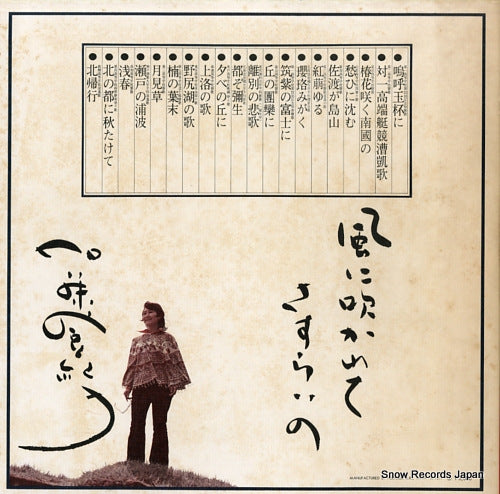 嗚呼玉杯に
対一高端艇競漕凱歌
椿花咲く南國の
愁ひに沈む
佐渡が島山
紅萠ゆる
瓔珞みがく
筑紫の富士に
丘の團欒に
離別の悲歌
都ぞ彌生
夕べの丘に
上洛の歌
野尻湖の歌
楠の葉末
月見草
瀬戸の浦波
浅春
北の都に秋たけて
北帰行
風に吹かれて
さすらいの
加藤登紀子
MANUFACTURED
Snow Records Japan